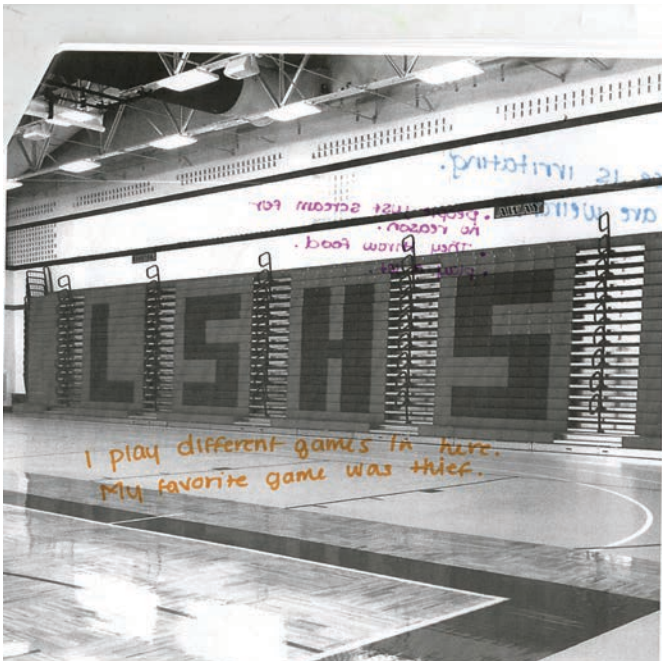 ce is irritating.
are weird
• people just scream for
no reason.
• They throw food.
AWAY
LSHS
I play different games in here.
My favorite game was thief.